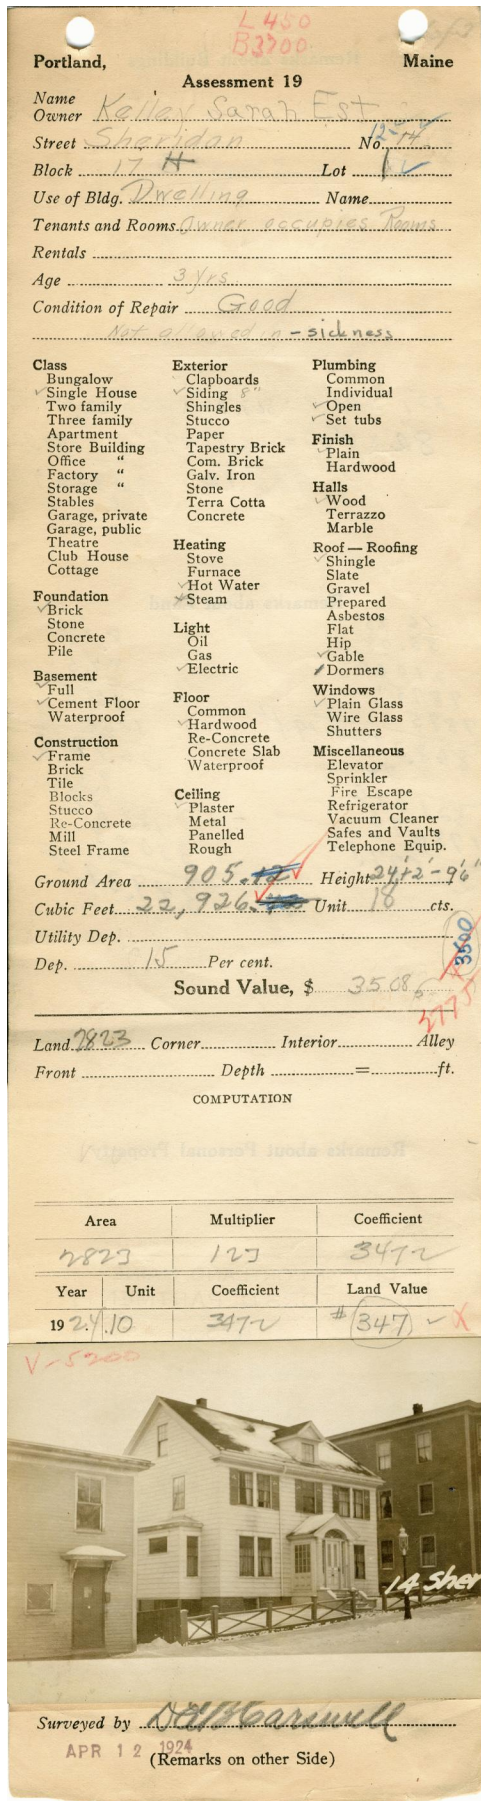 L 450
B3700
Portland, Maine
Assessment 19
Name
Owner Kelley Sarah Est
Street Sheridan No. 12-14
Block 17 H Lot 1
Use of Bldg. Dwelling Name
Tenants and Rooms Owner occupies Rooms
Rentals
Age 3 yrs
Condition of Repair Good
Not allowed in - sickness
Class
Bungalow
Single House
Two family
Three family
Apartment
Store Building
Office "
Factory "
Storage "
Stables
Garage, private
Garage, public
Theatre
Club House
Cottage
Foundation
Brick
Stone
Concrete
Pile
Basement
Full
Cement Floor
Waterproof
Construction
Frame
Brick
Tile
Blocks
Stucco
Re-Concrete
Mill
Steel Frame
Exterior
Clapboards
Siding 8"
Shingles
Stucco
Paper
Tapestry Brick
Com. Brick
Galv. Iron
Stone
Terra Cotta
Concrete
Heating
Stove
Furnace
Hot Water
Steam
Light
Oil
Gas
Electric
Floor
Common
Hardwood
Re-Concrete
Concrete Slab
Waterproof
Ceiling
Plaster
Metal
Panelled
Rough
Plumbing
Common
Individual
Open
Set tubs
Finish
Plain
Hardwood
Halls
Wood
Terrazzo
Marble
Roof — Roofing
Shingle
Slate
Gravel
Prepared
Asbestos
Flat
Hip
Gable
Dormers
Windows
Plain Glass
Wire Glass
Shutters
Miscellaneous
Elevator
Sprinkler
Fire Escape
Refrigerator
Vacuum Cleaner
Safes and Vaults
Telephone Equip.
Ground Area 905. Height 24'+2'-9'6"
Cubic Feet 22,926. Unit 18 cts.
Utility Dep.
3500
Dep. 15 Per cent.
Sound Value, $ 3508
2775
Land 2823 Corner Interior Alley
Front Depth = ft.
COMPUTATION
Area Multiplier Coefficient
2823 123 3472
Year Unit Coefficient Land Value
1924 .10 3472 # 347 X
V-5200
14 Sher
Surveyed by
APR 12 1924
(Remarks on other Side)